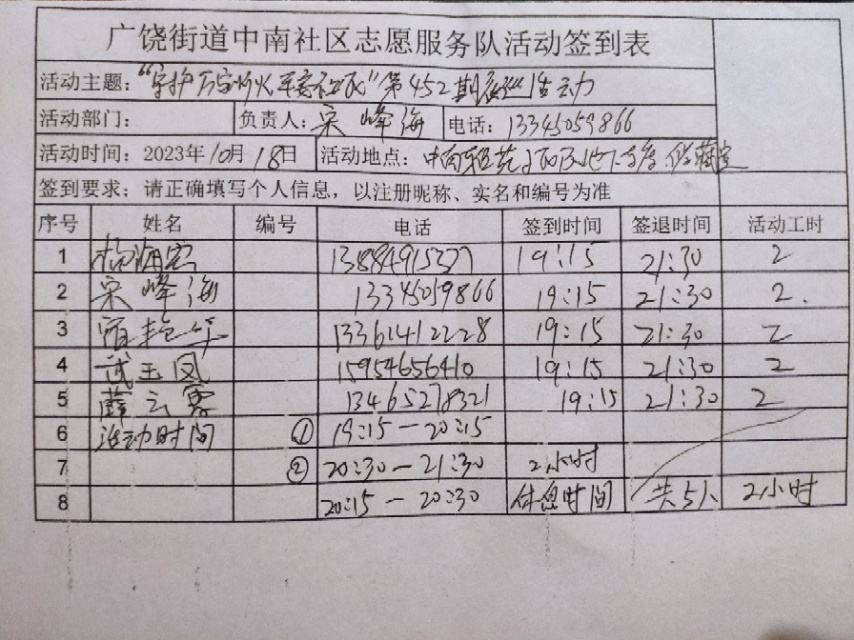 广饶街道中南社区志愿服务队活动签到表
活动主题：“守护万家灯火 平安社区”第452期夜巡活动
活动部门： 负责人：宋峰海 电话：13345059866
活动时间：2023年10月18日 活动地点：中南 小区及地下 储藏室
签到要求：请正确填写个人信息，以注册昵称、实名和编号为准
序号 姓名 编号 电话 签到时间 签退时间 活动工时
1 杨海 13884915377 19:15 21:30 2
2 宋峰海 13345059866 19:15 21:30 2.
3 艳华 13361412228 19:15 21:30 2
4 武玉凤 15954656410 19:15 21:30 2
5 薛云霞 13465278321 19:15 21:30 2
6 活动时间 ① 19:15—20:15
7 ② 20:30—21:30 2小时
8 20:15—20:30 休息时间 共5人 2小时